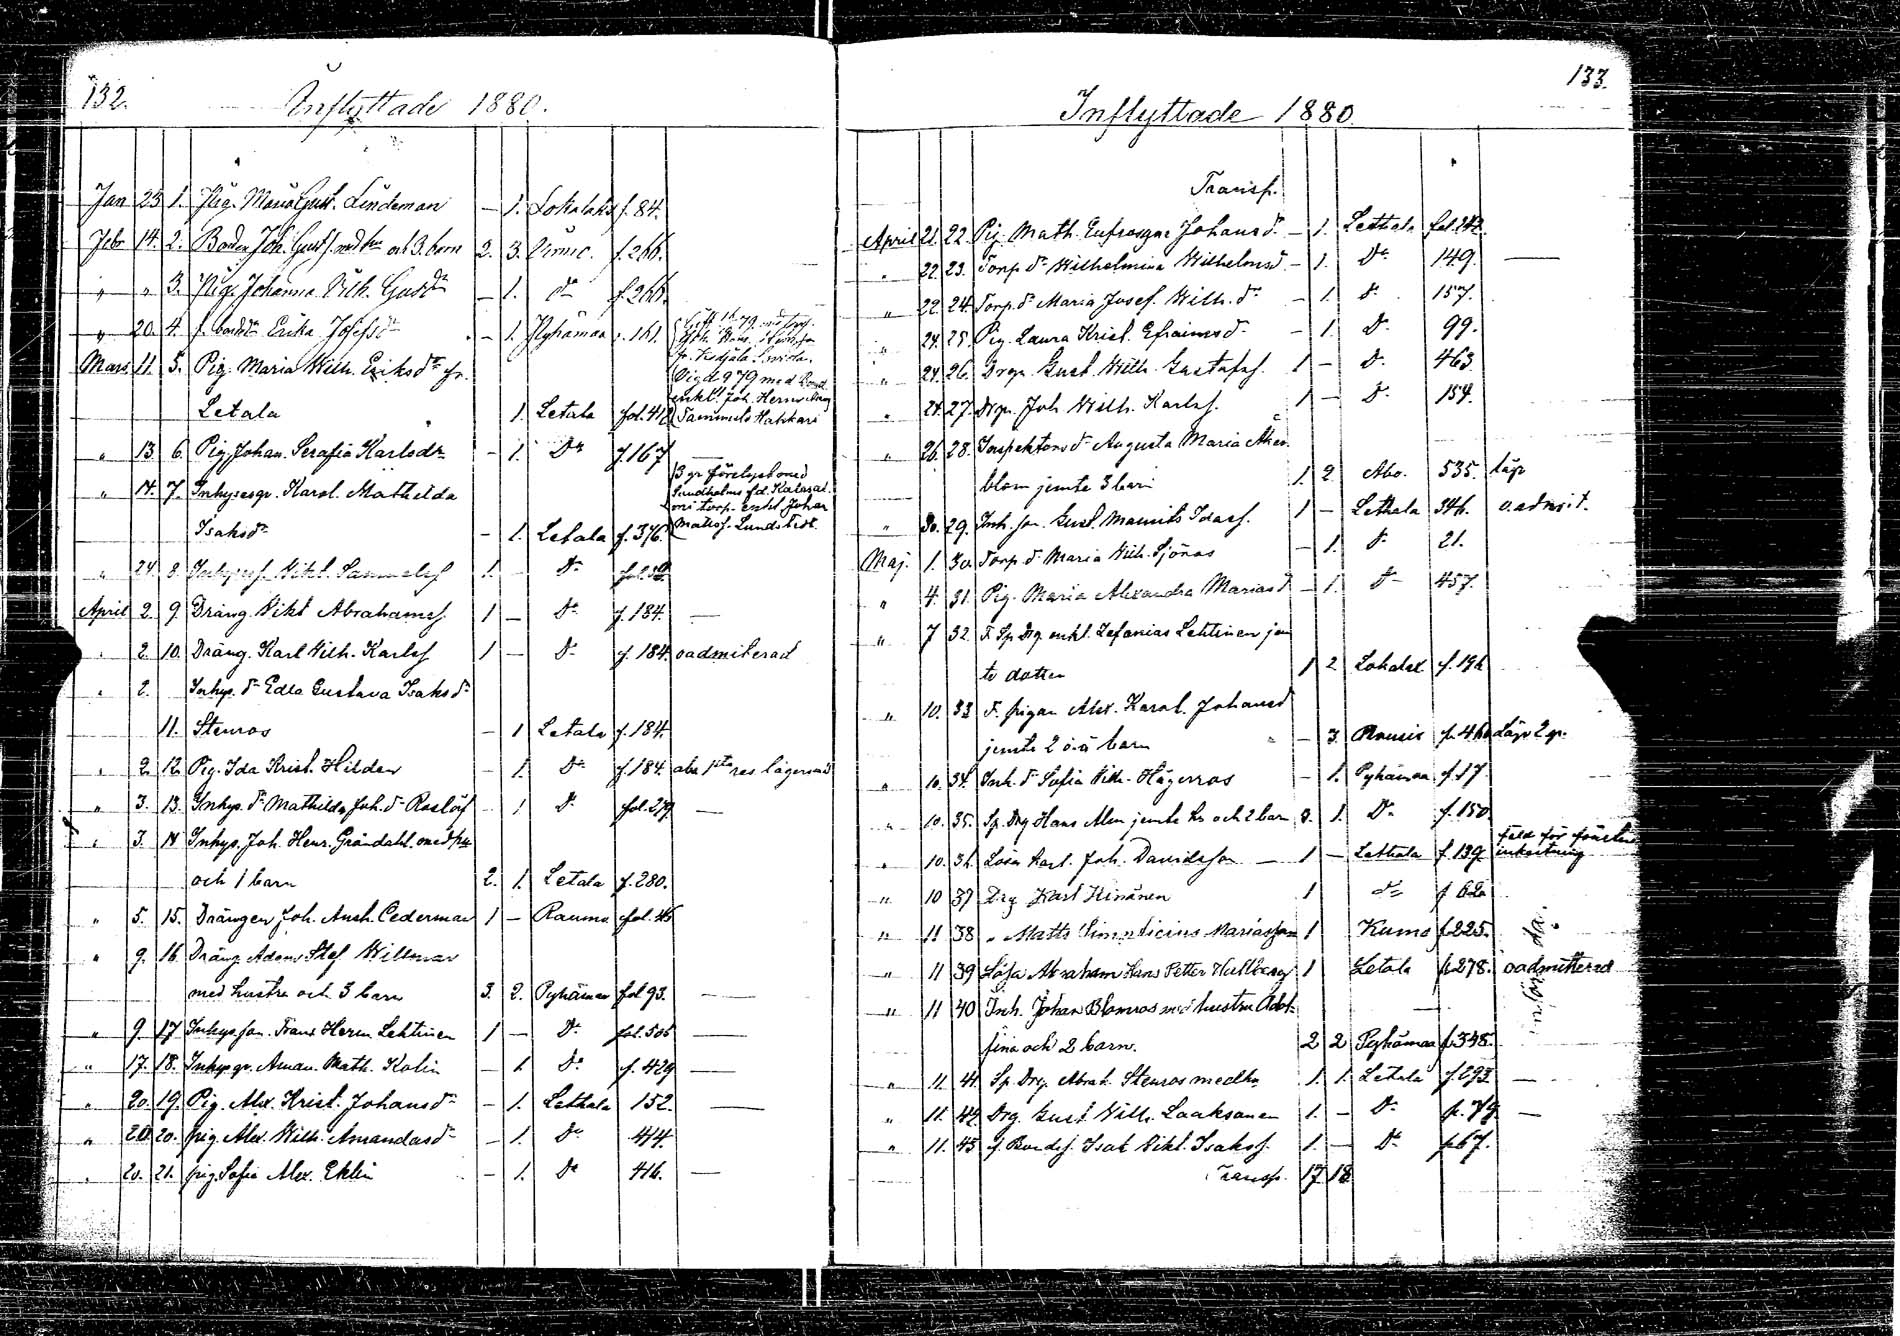 132.
Inflyttade 1880.
Jan 23 1. Pig. Maria Gust. Lindeman — 1. Lokalaks f. 84.
Febr 14. 2. Bonden Joh. Gustfs. med hu och 3. barn 2. 3. f. 266.
" " 3. Pig. Johanna Vilh. Gustdr — 1. do f. 266.
" 20. 4. f. bondedr Erika Josefsdr — 1. Pyhämaa f. 161.
Mars 11. 5. Pig. Maria Wilh. Eriksdr fr.
Letala 1. Letala fol. 412
Vigd 9 79 med
enkl. Joh. Herm.
Sammels Hakkari
" 13 6 Pig. Johan. Serafia Karlsdr — 1. Do f. 167 —
" 14. 7. Inhysesgr. Karol. Mathilda
Isaksdr — 1. Letala f. 376.
3 gr förelyst med
Sundholms fd. Kalasat.
torp. enkl Johan
Matsf. Lundstedt
" 24 8. Inhyses. Vikt. Samuelsf 1. — Do
April 2. 9. Dräng Vikt Abrahamsf. 1 — Do f. 184. —
" 2. 10. Dräng. Karl Vilh. Karlsf 1 — Do f. 184. oadmiterad
" 2. Inhys. dr Edla Gustava Isaksdr
11. Stenros — 1 Letala f. 184.
" 2. 12. Pig. Ida Krist. Hilden — 1. Do f. 184. abs 1sta res lägersmål
" 3. 13. Inhys. dr Mathilda Joh. dr Roslöf 1 Do fol. 279 —
" 3. 14 Inhys. Joh. Henr. Grändahl med hu
och 1 barn 2. 1. Letala f. 280.
" 5. 15. Drängen Joh. Ansh. Cederman 1 — Rauma fol. 46
" 9. 16 Dräng Adam Stef Willman
med hustru och 3 barn 3. 2. Pyhämaa fol 93. —
" 9. 17 Inhys. son. Frans Herm Lehtinen 1 — Do fol. 506 —
" 17. 18. Inhysgr. Aman. Math. Kolin — 1 Do f. 429 —
" 20. 19. Pig. Alex. Krist. Johansdr — 1. Lethala 152. —
" 20. 20. pig. Alex. Wilh. Amandasdr — 1. Do 414.
" 20. 21. pig. Sofia Alex. Eklin — 1. Do 416. —
133.
Inflyttade 1880.
Transp.
April 21. 22. Pig Math. Eufrosyne Johansdr — 1. Lethala fol. 242.
" 22. 23. Torp. dr Wilhelmina Wilhelmsd. — 1. Do 149. —
" 22. 24. Torp. dr Maria Josef. Wilh. dr — 1. Do 157.
" 24. 25. Pig. Laura Krist. Efraimsdr — 1. Do 99.
" 24. 26. Drgn. Gust. Wilh. Gustafsf. 1 — Do 463.
" 24. 27. Drgn. Joh Wilh. Karlsf. 1 — Do 154.
" 26. 28. Inspektorsdr Augusta Maria Åker-
blom jemte 3 barn 1. 2. Åbo. 535. läp
" 30. 29. Inh. son Gust. Maurits Idasf. 1 — Lethala 346. oadmit.
Maj. 1. 30 Torp. dr Maria Vilh. Sjöros — 1. Do 21.
" 4. 31. Pig. Maria Alexandra Mariasd — 1. Do 457.
" 7 32. F. Sp. Drg. enkl. Zefanias Lehtinen jem
te dotter 1 2. Lokalax f. 196
" 10. 33 F. pigan Alex. Karol. Johansd
jemte 2 o.ä barn — 3. Nousis f. 460 Läp. 2 gr.
" 10. 34. Inh. dr Sofia Vilh. Hägerros — 1. Pyhämaa f. 17.
" 10. 35. Sp. Drg Hans Alen jemte hu och 2 barn 2. 1. Do f. 150.
" 10. 36. Lösa karl. Joh. Davidsson — 1 — Lethala f. 139 fäld för första inbrottning
" 10 37 Drg Karl Hinänen 1 do f 62
" 11 38 " Matts Simplicius Mariasson 1 Kumo f. 225.
" 11 39 Lösa Abraham Hans Petter Hallberg 1 Letala f. 278. oadmitterad
" 11 40 Inh. Johan Blomros med hustru Adol-
fina och 2 barn. 2 2 Pyhämaa f. 348.
" 11. 41. Sp. Drg. Abrah. Stenros med hu 1. 1. Letala f. 293 —
" 11. 42. Drg. Gust Wilh. Laaksonen 1. — Do f. 79. —
" 11. 43 f. Bondes. Isak Vikt. Isaksf. 1. — Do f. 67.
Transp. 17 18